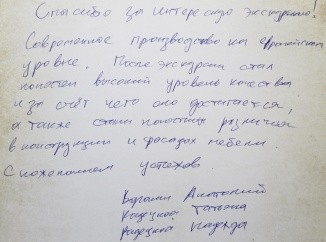 Спасибо за интересную экскурсию!
Современное производство на европейском
уровне. После экскурсии стал
понятен высокий уровень качества
и за счёт чего оно достигается,
а также стали понятны различия
в конструкции и фасадах мебели.
С пожеланием успехов
Анатолий
Татьяна
Надежда